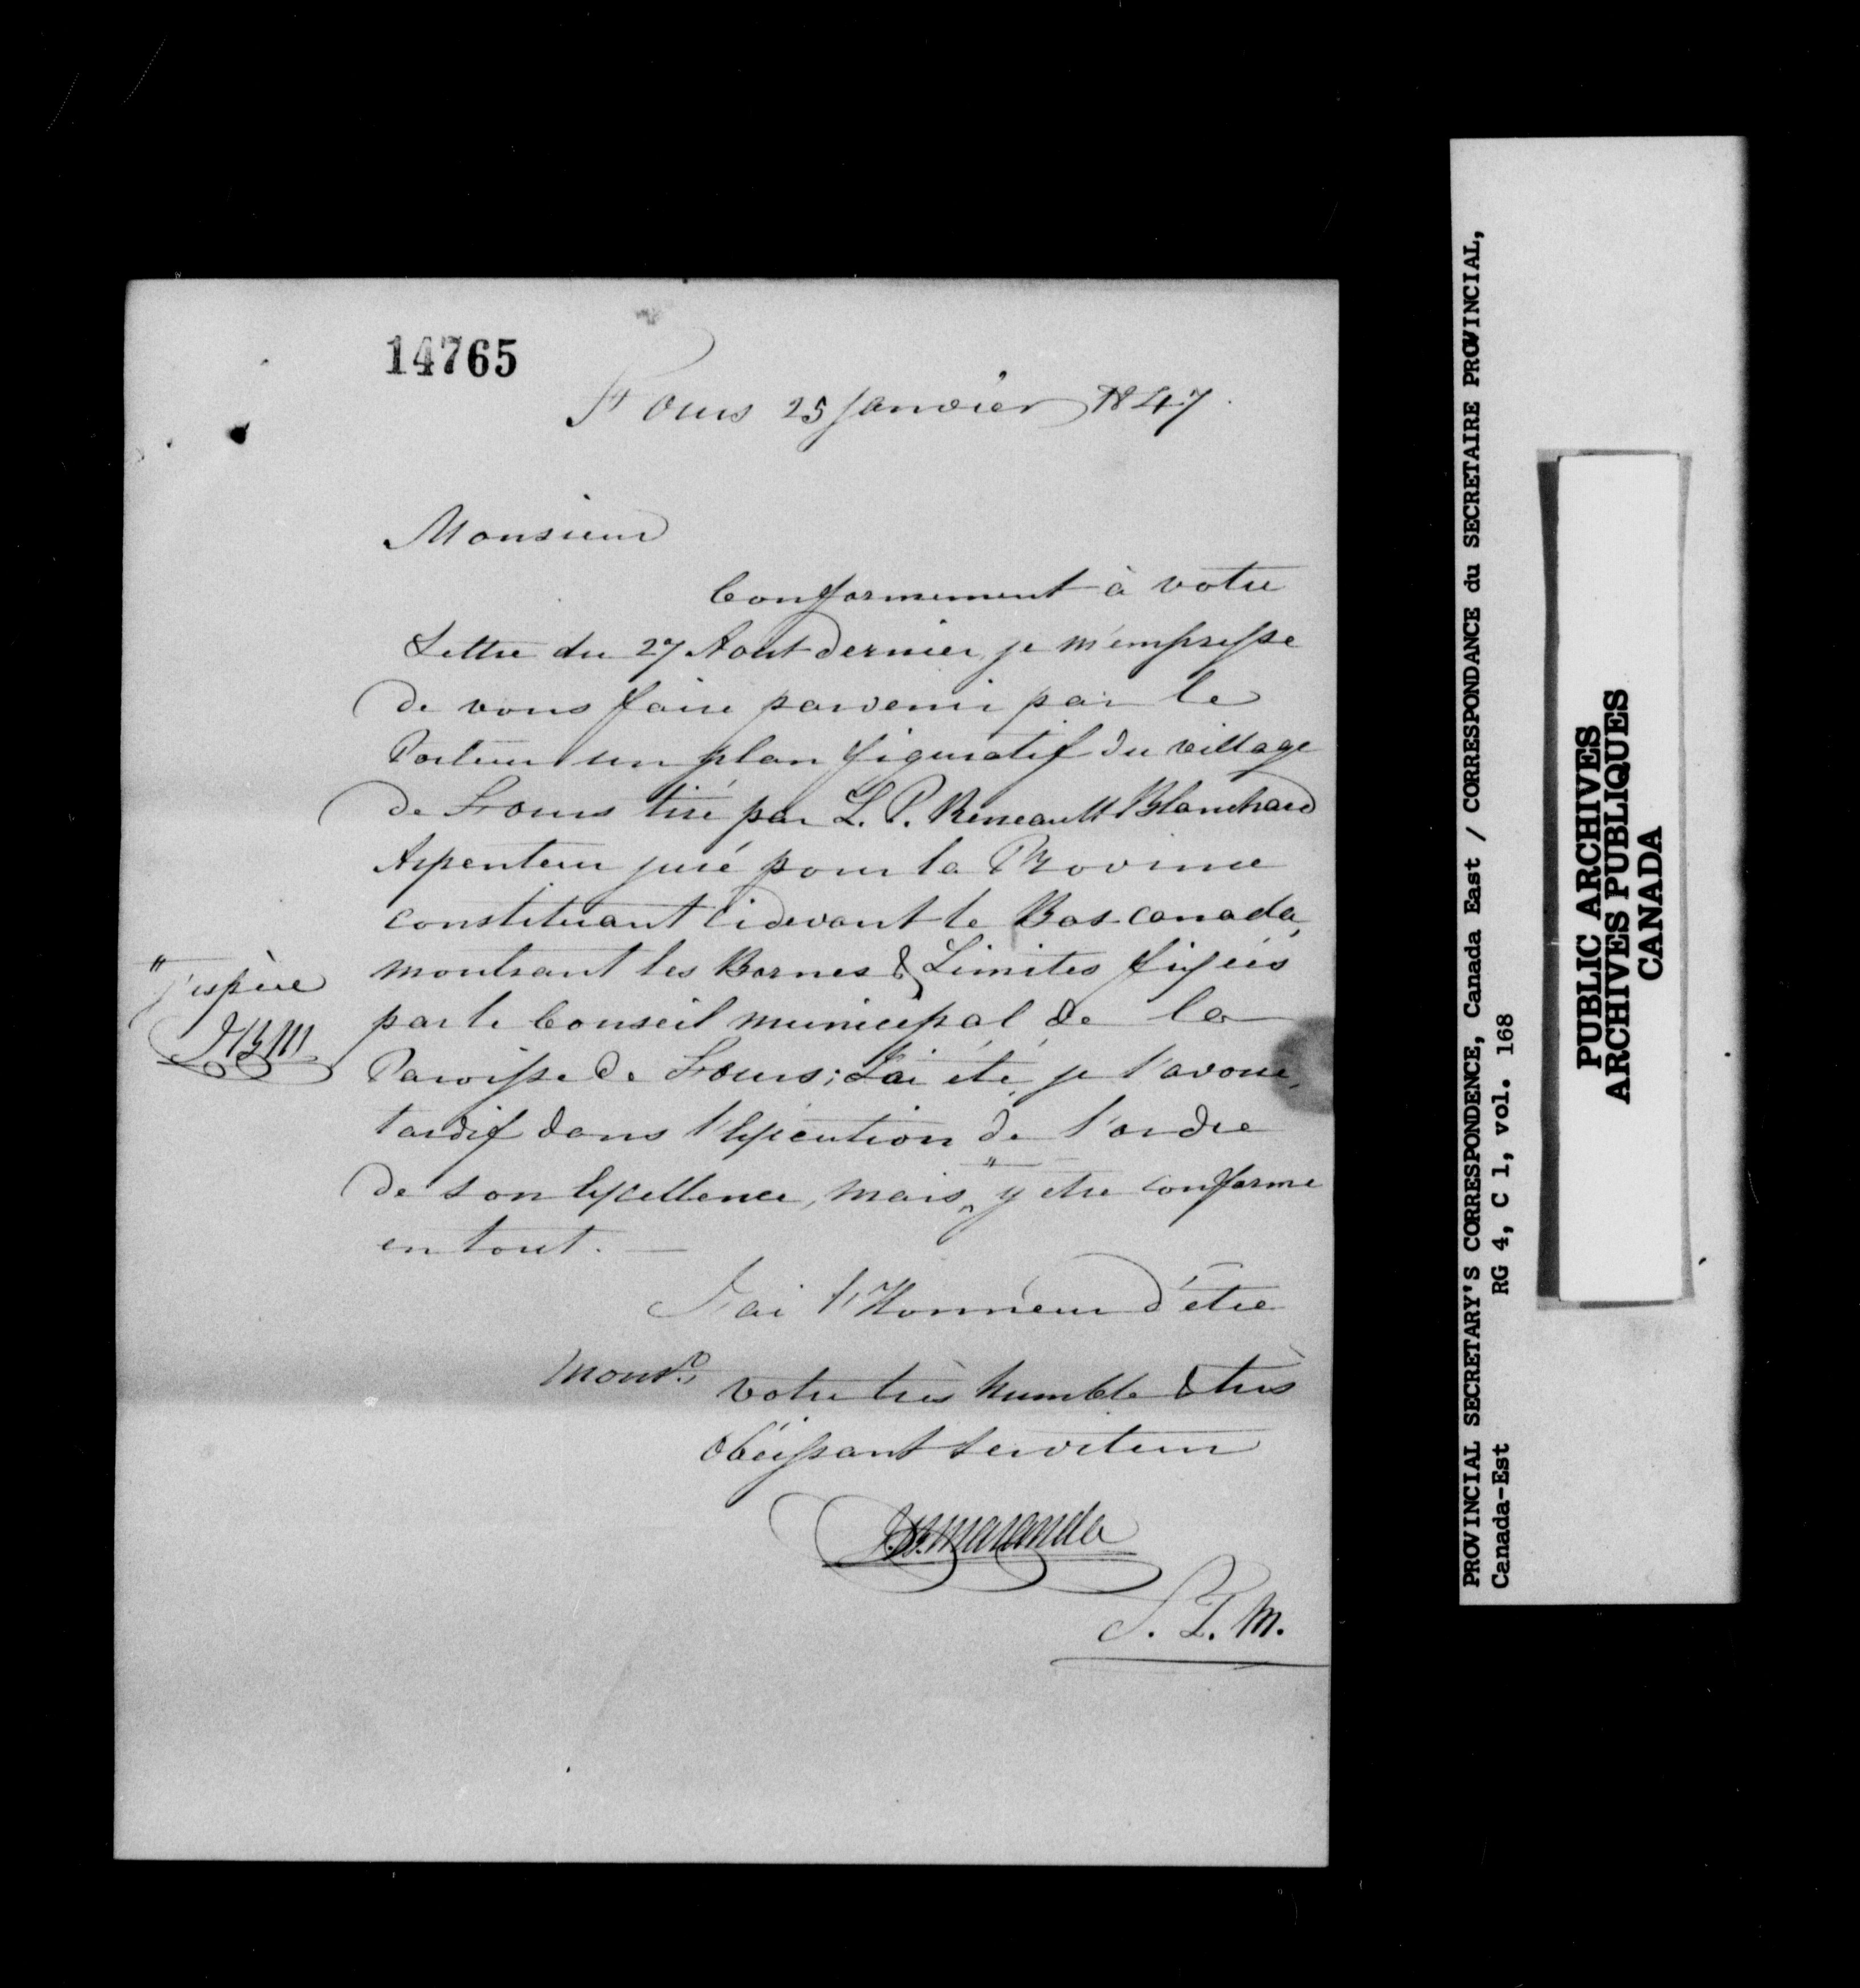 14765
St Ours 25 Janvier 1847.
Monsieur
Conformement à votre
Lettre du 27 Aout dernier, je m'empresse
de vous faire parvenir par le
Porteur un plan figuratif du village
de St Ours tiré par L. P. Reneault Blanchard
Arpenteur juré pour la Province
constituant cidevant le Bas-canada,
montrant les Bornes & Limites fixées
par le Conseil municipal de la
Paroisse de St Ours; J'ai été, je l'avoue,
tardif dans l'Execution de l'ordre
de son Excellence, mais " y etre conforme
en tout.
" J'espère
J'ai l'Honneur d'être
Monsr.
votre très humble & très
Obéissant serviteur
maranda
S. T. M.
PROVINCIAL SECRETARY'S CORRESPONDENCE, Canada East / CORRESPONDANCE du SECRETAIRE PROVINCIAL,
Canada-Est RG 4, C 1, vol. 168
PUBLIC ARCHIVES
ARCHIVES PUBLIQUES
CANADA